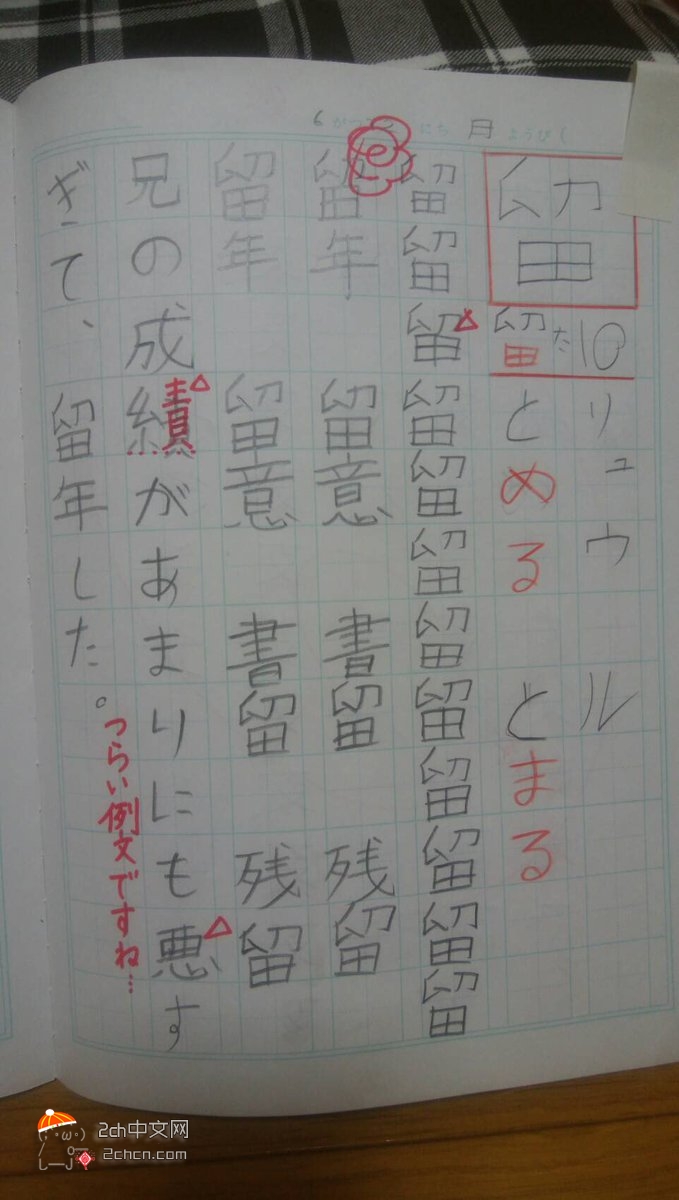 6 がつ にち 月 ようび (
留
留 た 10
リュウ ル
とめる とまる
留留留留留留留留留留留留
留年 留意 書留 残留
留年 留意 書留 残留
兄の成績があまりにも悪す
ぎて、留年した。
つらい例文ですね…
2ch中文网
2chcn.com